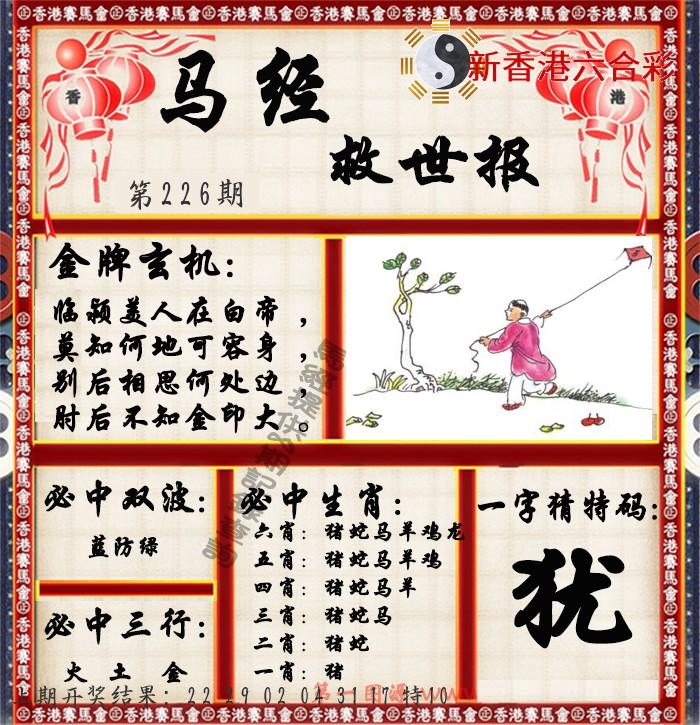 新香港六合彩
香
港
马经
救世报
第226期
金牌玄机：
临颍美人在白帝，
莫知何地可容身，
别后相思何处边，
肘后不知金印大。
必中双波：
蓝防绿
必中三行：
火 土 金
必中生肖：
六肖：猪蛇马羊鸡龙
五肖：猪蛇马羊鸡
四肖：猪蛇马羊
三肖：猪蛇马
二肖：猪蛇
一肖：猪
一字猜特码：
犹
期开奖结果：22 29 02 04 31 17 特10
香港賽馬會